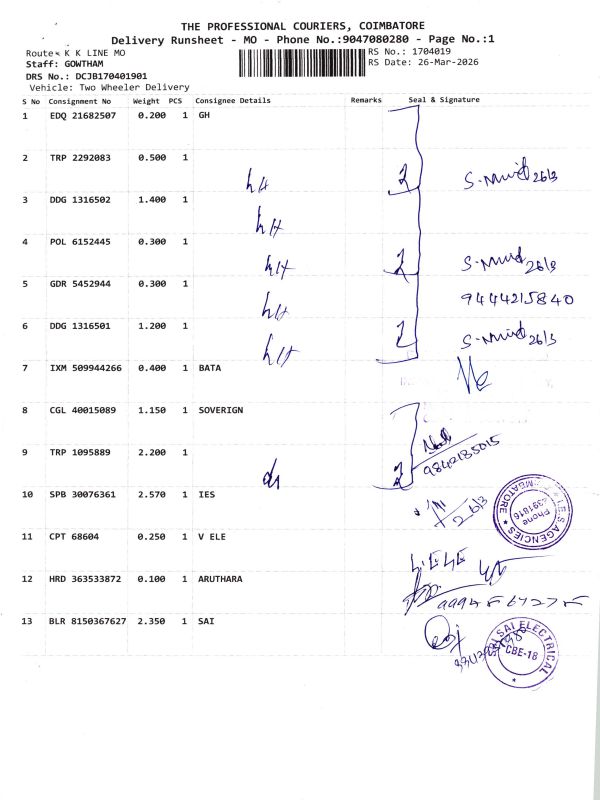 THE PROFESSIONAL COURIERS, COIMBATORE
Delivery Runsheet - MO - Phone No.:9047080280 - Page No.:1
Route: K K LINE MO
RS No.: 1704019
Staff: GOWTHAM
RS Date: 26-Mar-2026
DRS No.: DCJB170401901
Vehicle: Two Wheeler Delivery
S No Consignment No Weight PCS Consignee Details Remarks Seal & Signature
1 EDQ 21682507 0.200 1 GH
2 TRP 2292083 0.500 1
3 DDG 1316502 1.400 1
4 POL 6152445 0.300 1
5 GDR 5452944 0.300 1
9444215840
6 DDG 1316501 1.200 1
7 IXM 509944266 0.400 1 BATA
8 CGL 40015089 1.150 1 SOVERIGN
9 TRP 1095889 2.200 1
9842185015
10 SPB 30076361 2.570 1 IES
26/3
I.E.S. AGENCIES
Phone
2391816
11 CPT 68604 0.250 1 V ELE
12 HRD 363533872 0.100 1 ARUTHARA
13 BLR 8150367627 2.350 1 SAI
SRI SAI ELECTRICAL
CBE-18